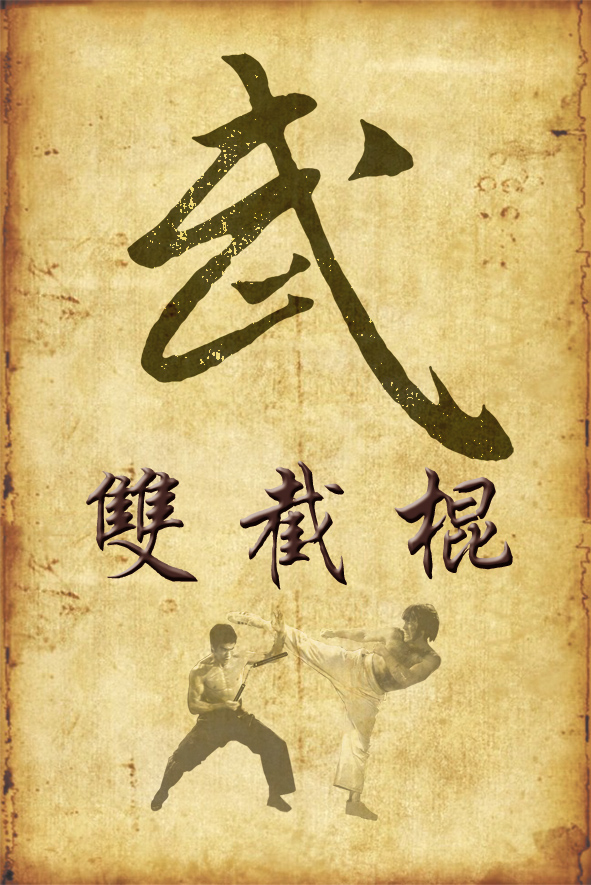 武
雙截棍